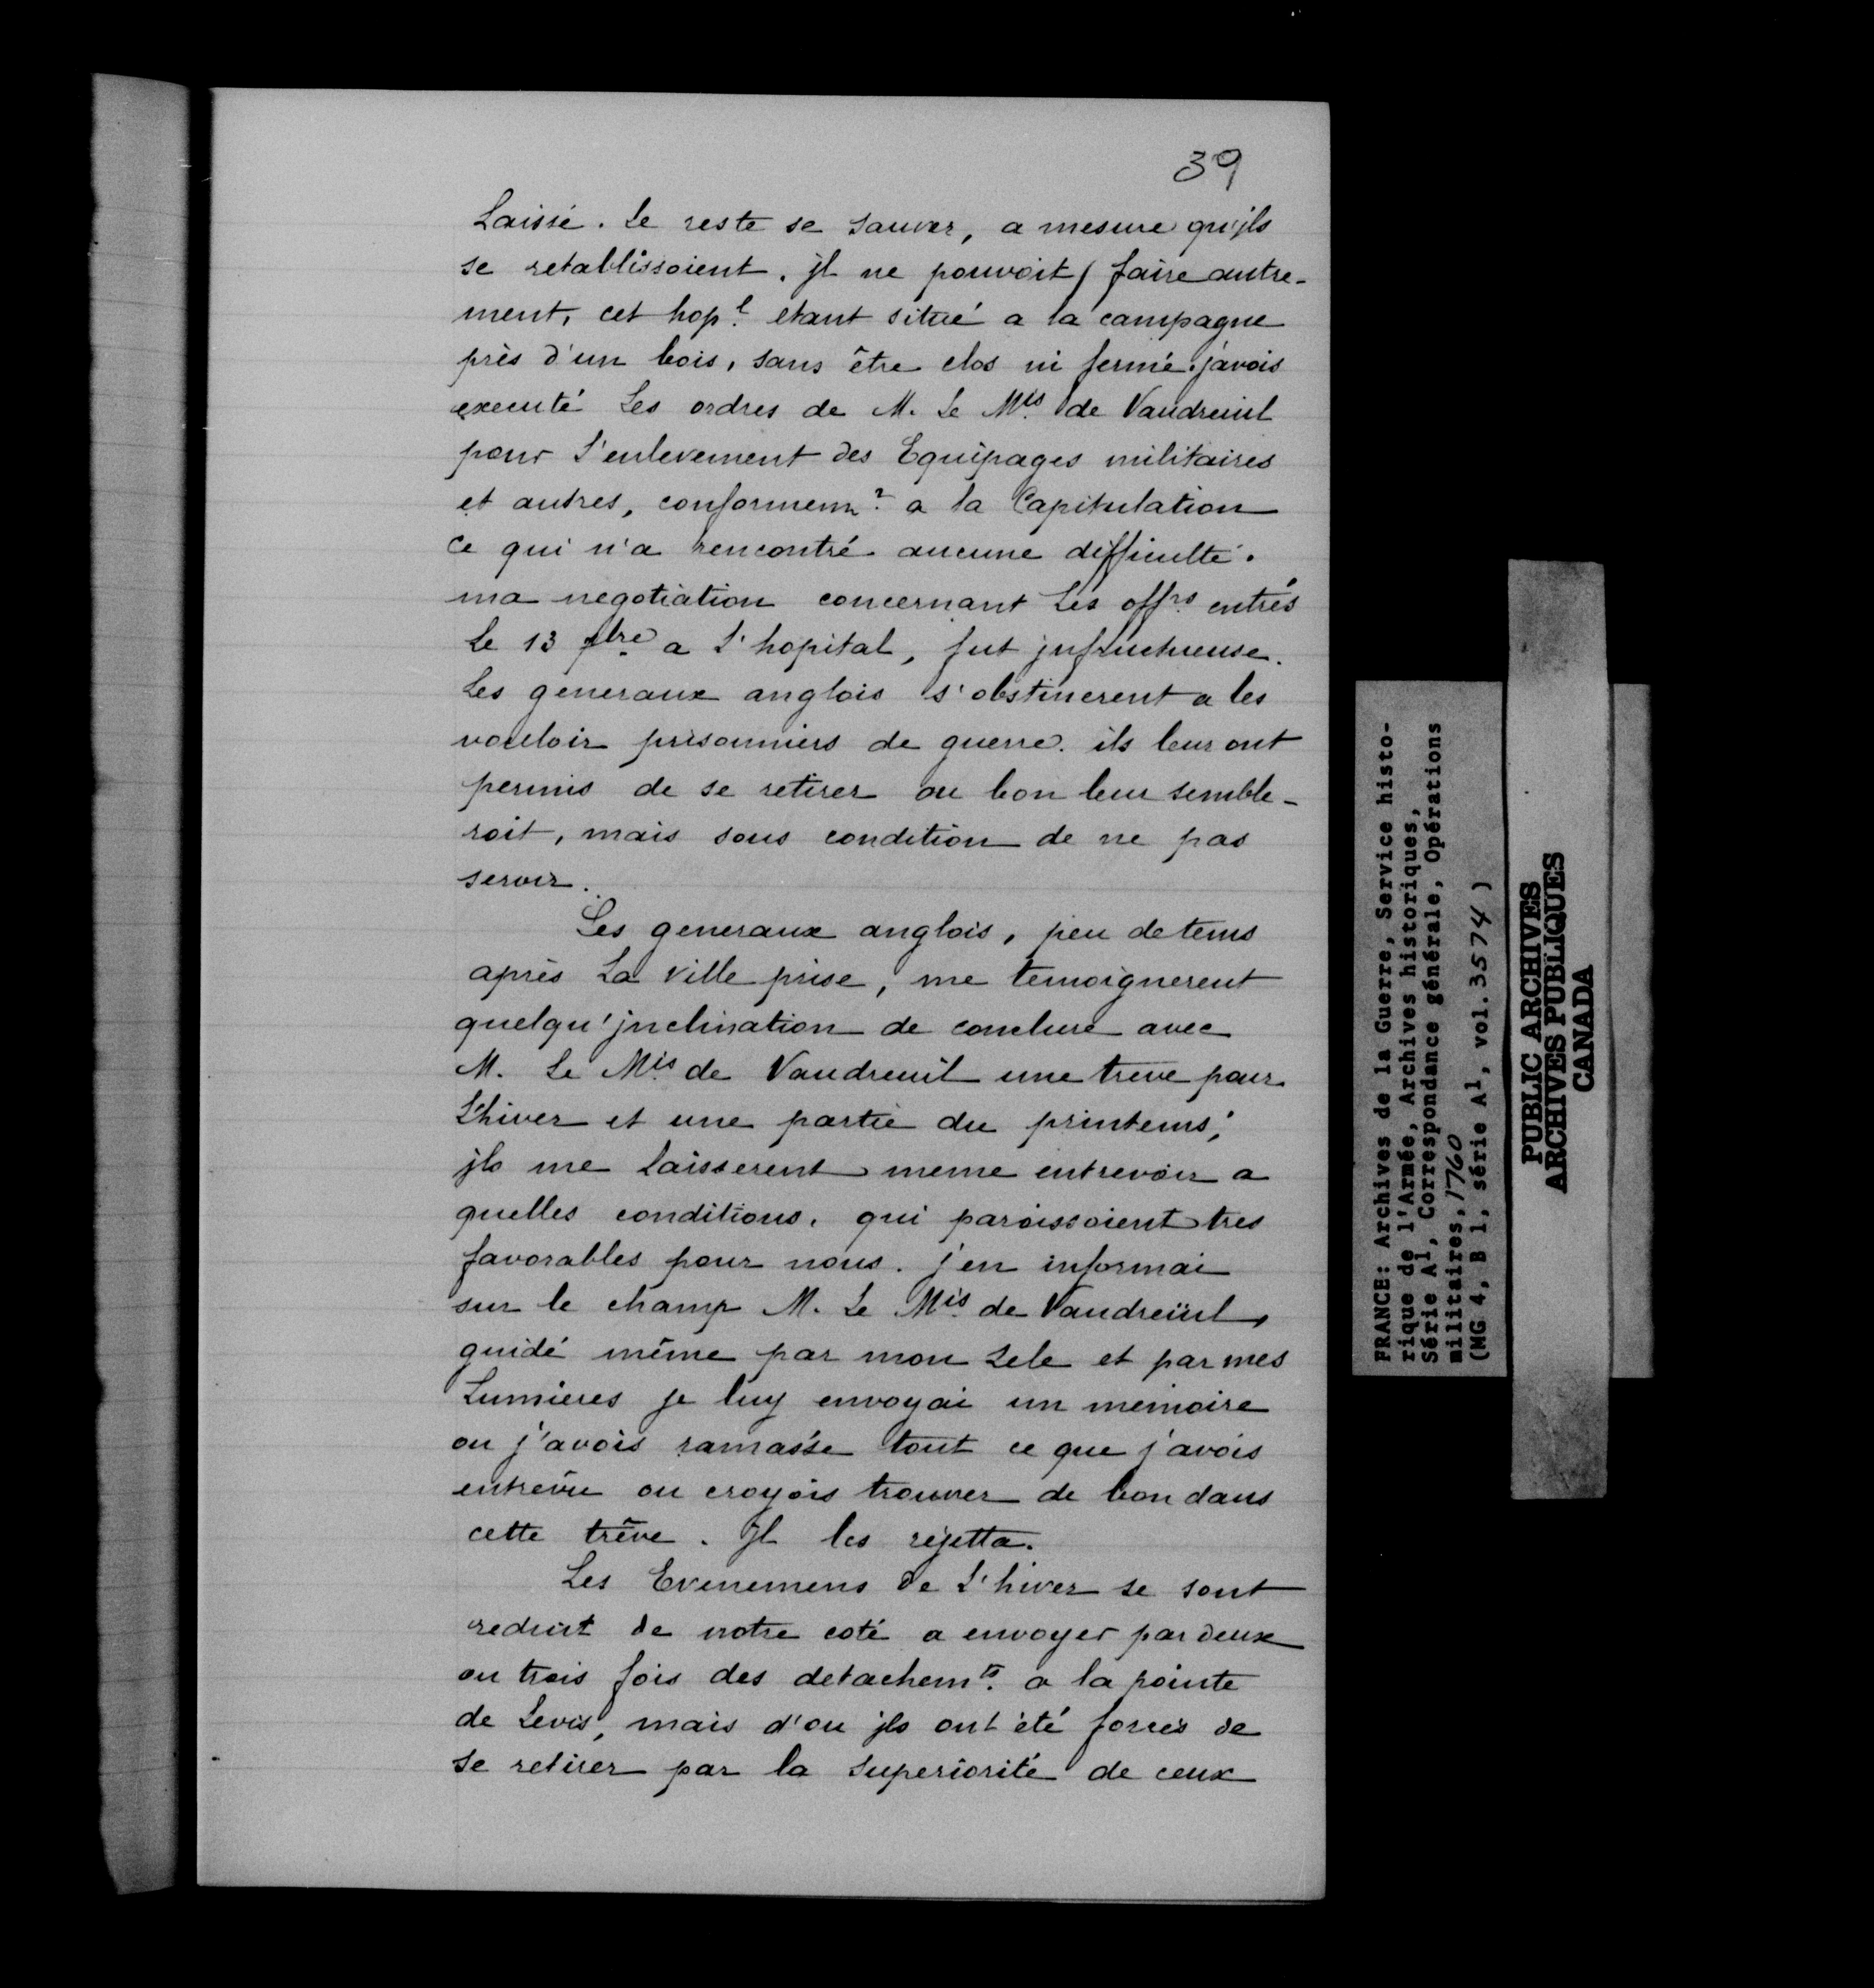 39
Laissé. Le reste se sauver, a mesure qu'jls
se retablissoient. jl ne pouvoit / faire autre-
ment, cet hop.l etant situé a la campagne
près d'un bois, sans être clos ni fermé. j'avois
executé Les ordres de M. Le Mis de Vaudreuil
pour L'enlevement des Equipages militaires
et autres, conformem.t a la Capitulation
ce qui n'a rencontré aucune difficulté.
ma negotiation concernant Les offrs entrés
Le 13 7bre a L'hopital, fut jnfructueuse.
Les generaux anglois s'obstinerent a les
vouloir prisonniers de guerre. ils leur ont
permis de se retirer ou bon leur semble-
roit, mais sous condition de ne pas
servir.
Les generaux anglois, peu de tems
après La ville prise, me temoignerent
quelqu'jnclination de conclure avec
M. Le Mis de Vaudreuil une treve pour
L'hiver et une partie du printems;
jls me Laisserent meme entrevoir a
quelles conditions, qui paroissoient tres
favorables pour nous. j'en informai
sur le champ M. Le Mis de Vaudreüil,
guidé même par mon zele et par mes
Lumieres je luy envoyai un memoire
ou j'avois ramassé tout ce que j'avois
entrevu ou croyois trouver de bon dans
cette trêve. Jl les rejetta.
Les Evenemens de L'hiver se sont
reduit de notre coté a envoyer par deux
ou trois fois des detachemts. a la pointe
de Levis, mais d'ou jls ont été forcés de
se retirer par la superiorité de ceux
FRANCE: Archives de la Guerre, Service histo-
rique de l'Armée, Archives historiques,
Série A1, Correspondance générale, Opérations
militaires, 1760
(MG 4, B 1, série A1, vol. 3574)
PUBLIC ARCHIVES
ARCHIVES PUBLIQUES
CANADA